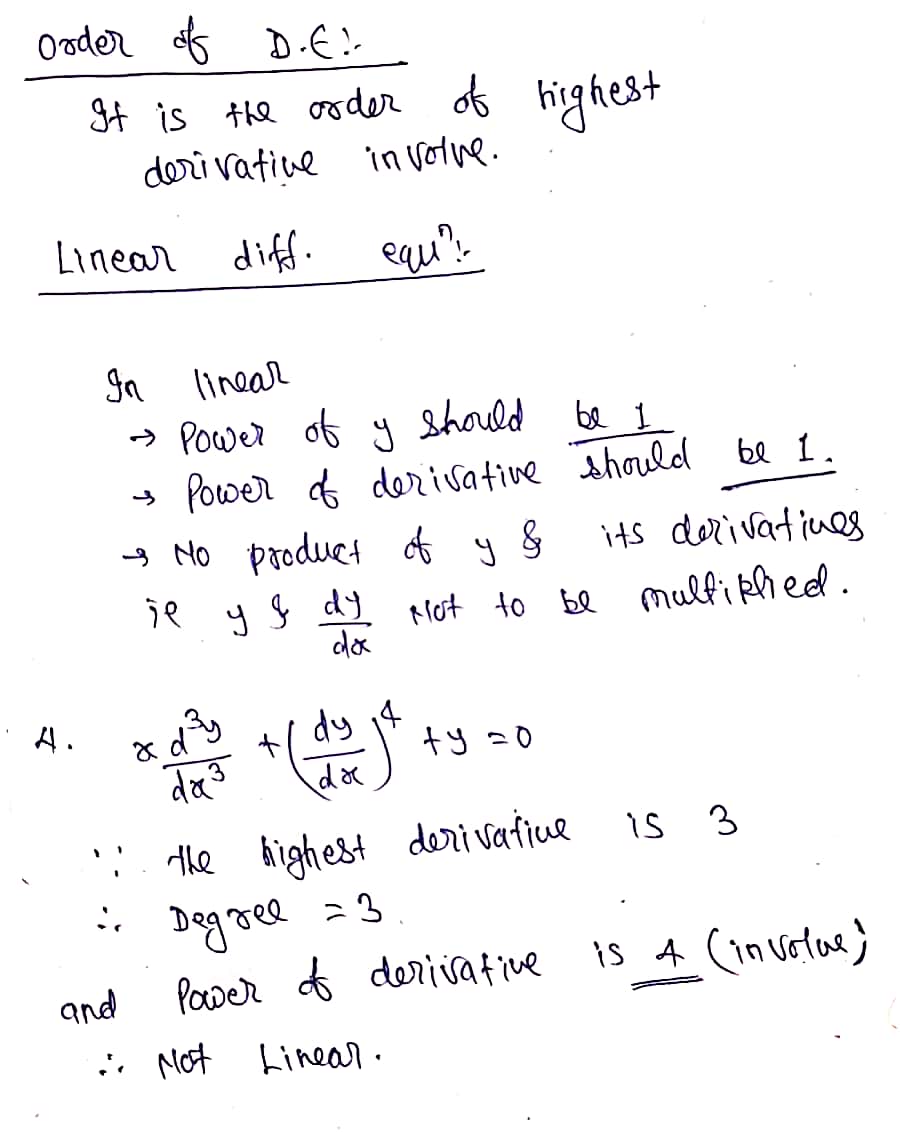 Order of D.E:-
It is the order of highest
derivative involve.
Linear diff. equⁿ:-
In linear
→ Power of y should be 1
→ Power of derivative should be 1.
→ No product of y & its derivatives
ie y & dy/dx Not to be multiplied.
4. x d³y/dx³ + (dy/dx)⁴ + y = 0
∵ The highest derivative is 3
∴ Degree = 3.
and Power of derivative is 4 (involve)
∴ Not Linear.